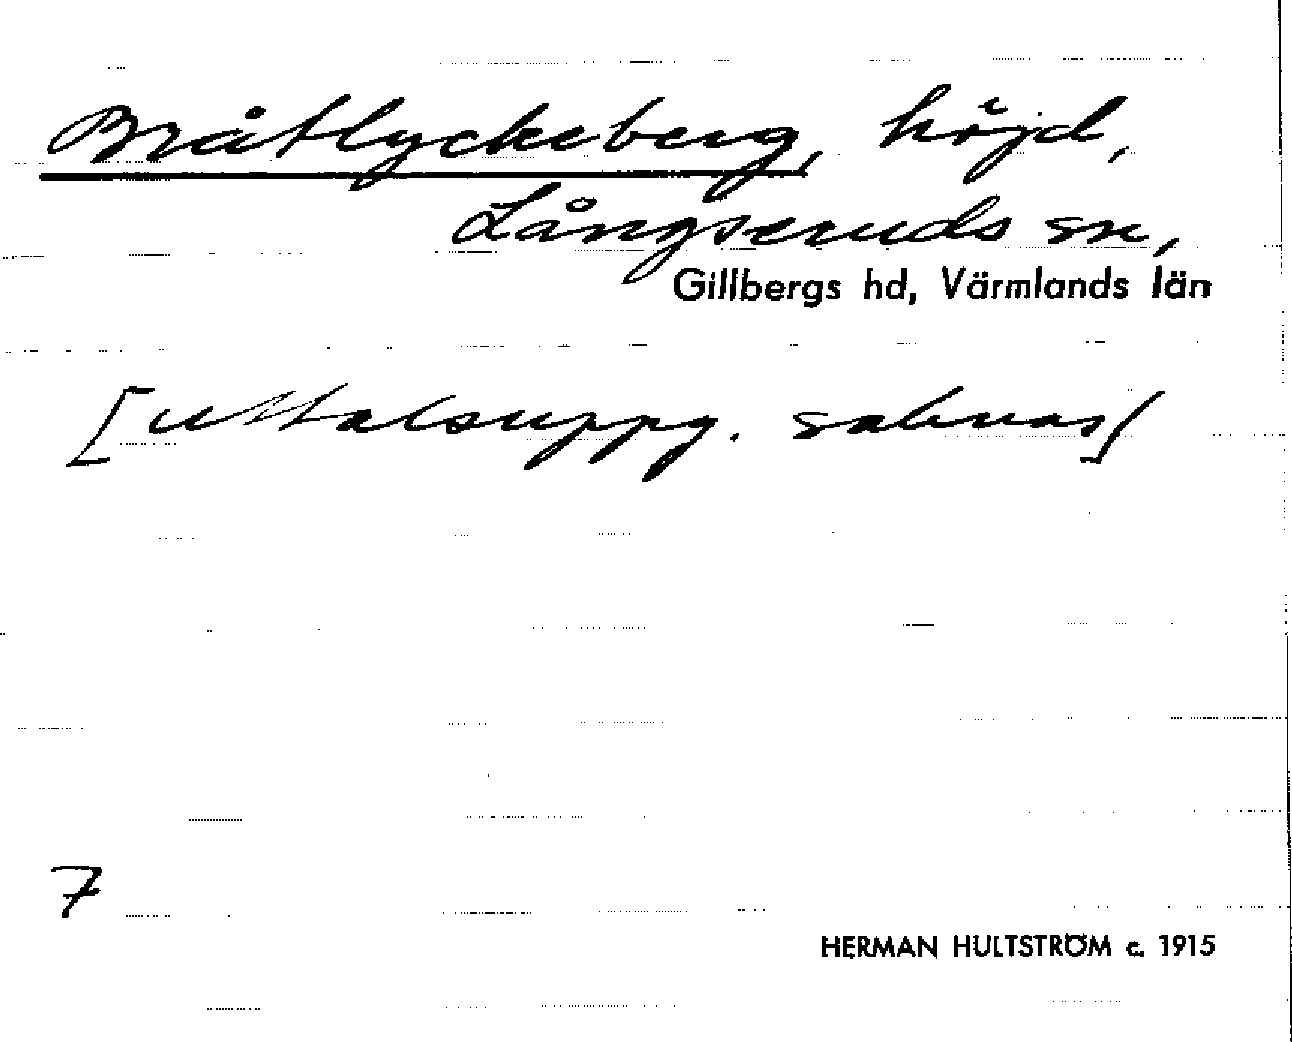 Bråtlyckeberg, höjd,
Långseruds sn,
Gillbergs hd, Värmlands län
[uttalsuppg. saknas]
7
HERMAN HULTSTRÖM c. 1915